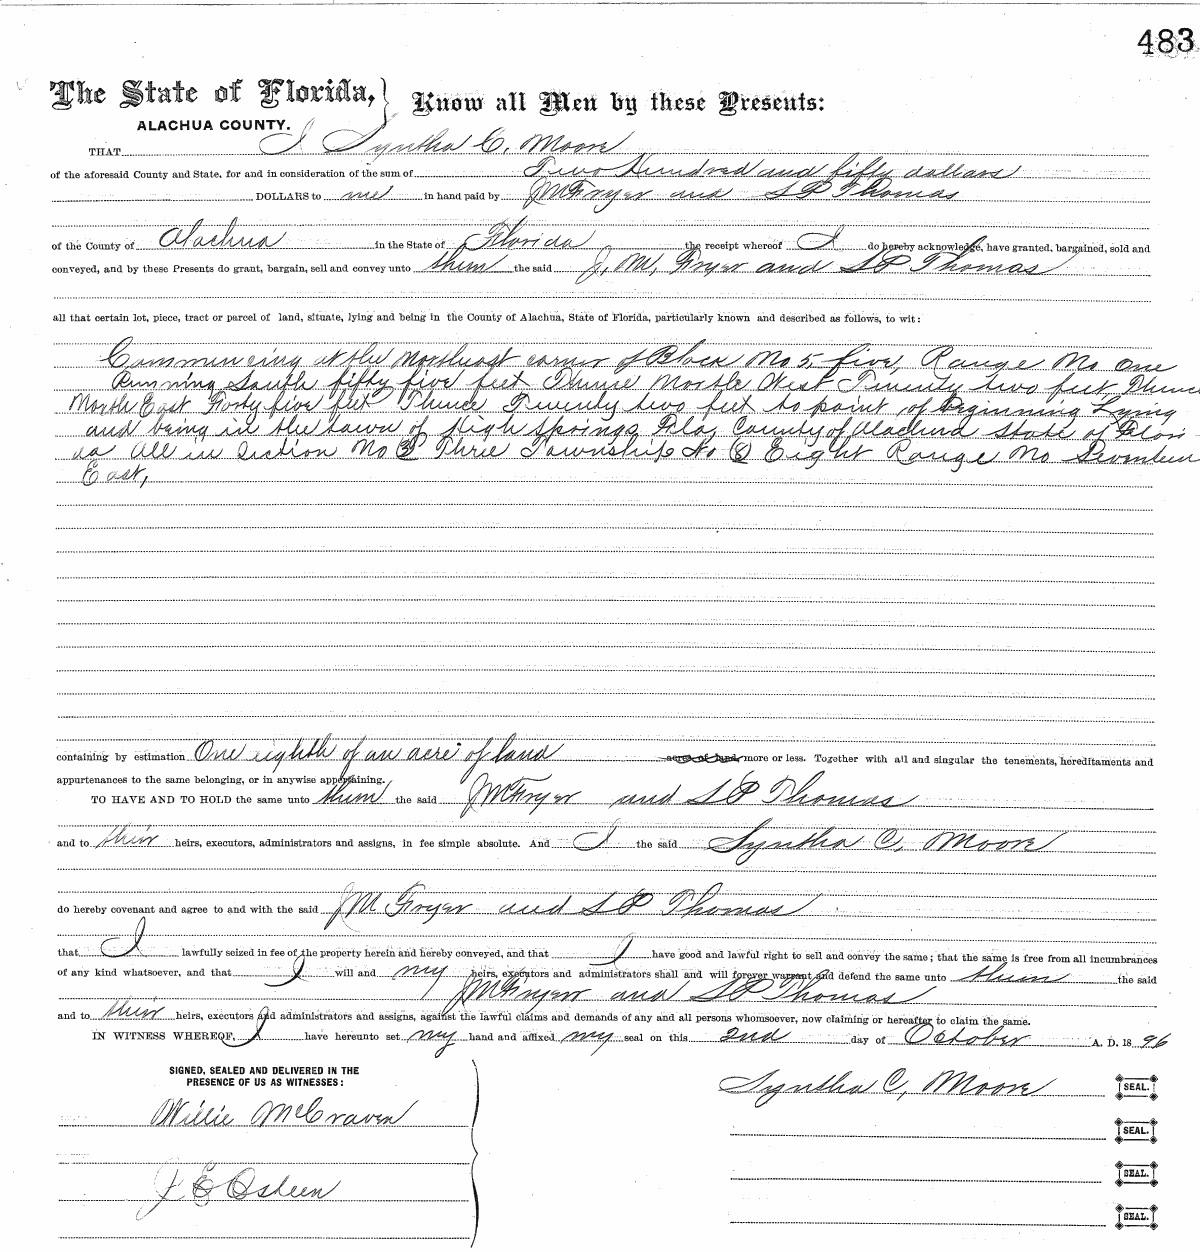 483
The State of Florida, } Know all Men by these Presents:
ALACHUA COUNTY.
THAT I Syntha C. Moore
of the aforesaid County and State, for and in consideration of the sum of Two Hundred and fifty dollars
DOLLARS to me in hand paid by J M Fryer and S P Thomas
of the County of Alachua in the State of Florida the receipt whereof I do hereby acknowledge, have granted, bargained, sold and
conveyed, and by these Presents do grant, bargain, sell and convey unto them the said J. M. Fryer and S P Thomas
all that certain lot, piece, tract or parcel of land, situate, lying and being in the County of Alachua, State of Florida, particularly known and described as follows, to wit:
Commencing at the Northeast corner of Block No 5 five, Range No One
Running South fifty five feet Thence North West Twenty two feet, Thence
North East Forty five feet Thence Twenty two feet to point of Beginning Lying
and being in the town of High Springs Fla, County of Alachua State of Flori
da All in Section No 3 Three Township No 8 Eight Range No Seventeen
East,
containing by estimation One eighth of an acre of land acres of land, more or less. Together with all and singular the tenements, hereditaments and
appurtenances to the same belonging, or in anywise appertaining.
TO HAVE AND TO HOLD the same unto them the said J M Fryer and S P Thomas
and to their heirs, executors, administrators and assigns, in fee simple absolute. And I the said Syntha C. Moore
do hereby covenant and agree to and with the said J M Fryer and S P Thomas
that I lawfully seized in fee of the property herein and hereby conveyed, and that I have good and lawful right to sell and convey the same; that the same is free from all incumbrances
of any kind whatsoever, and that I will and my heirs, executors and administrators shall and will forever warrant and defend the same unto them the said
J M Fryer and S P Thomas
and to their heirs, executors and administrators and assigns, against the lawful claims and demands of any and all persons whomsoever, now claiming or hereafter to claim the same.
IN WITNESS WHEREOF, I have hereunto set my hand and affixed my seal on this 2nd day of October A. D. 18 96
SIGNED, SEALED AND DELIVERED IN THE
PRESENCE OF US AS WITNESSES:
Syntha C, Moore SEAL.
Willie McCraven
SEAL.
SEAL.
J E Osteen
SEAL.